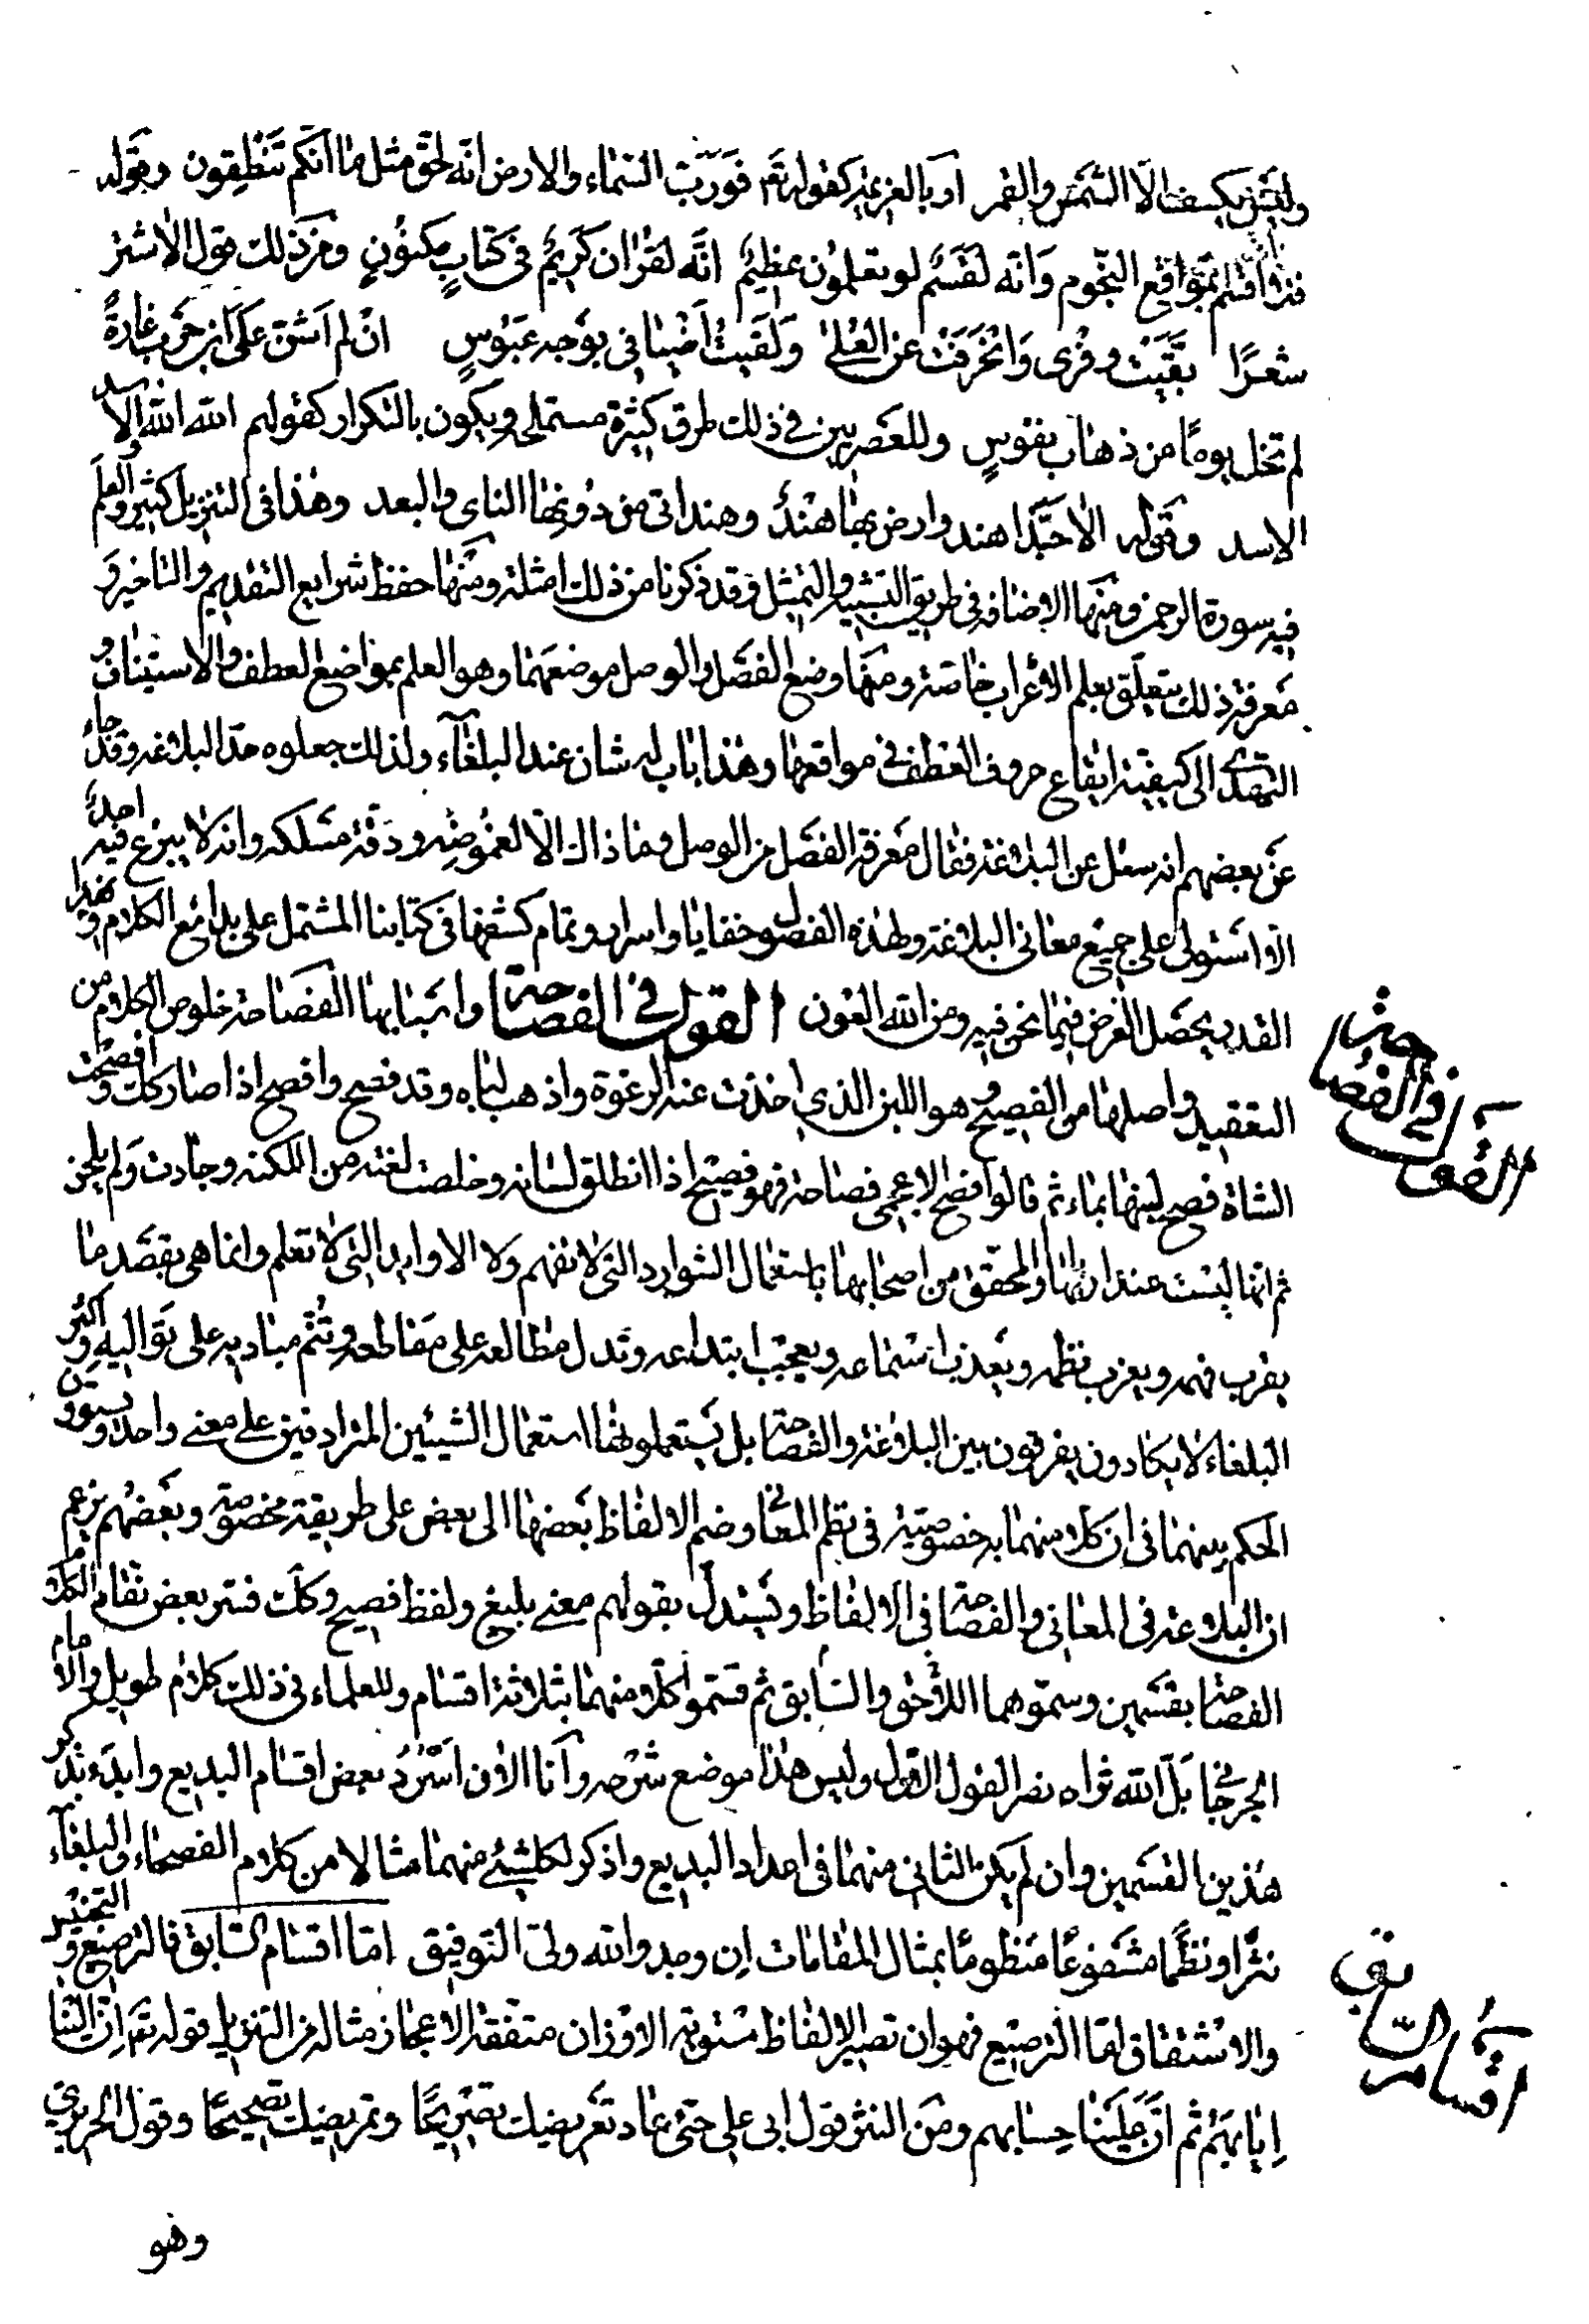 وليس يكسف الا الشمس والقمر او بالعزيمة كقوله تعم فورب السماء والارض انه لحق مثل ما انكم تنطقون وبقوله
فلا اقسم بمواقع النجوم وانه لقسم لو تعلمون عظيم انه لقران كريم فى كتاب مكنون ومن ذلك قول الاشتر
شعرا بقيت وفرى وانحرفت عن العلى ولقيت اضيافى بوجه عبوس ان لم اشن على ابن حرب غارة
لم تخل يوما من ذهاب نفوس وللعصريين فى ذلك طرق كثيرة مستملحة ويكون بالتكرار كقولهم الله الله والاسد
الاسد وقوله الا حبذا هند وارض بها هند وهند اتى من دونها الناى والبعد وهذا فى التنزيل كثير والعلم
فيه سورة الرحمن ومنها الاضافة فى طريق التشبيه والتمثيل وقد ذكرنا من ذلك امثلة ومنها حفظ شرايع التقديم والتاخير و
معرفة ذلك يتعلق بعلم الاعراب خاصة ومنها وضع الفصل والوصل موضعهما وهو العلم بمواضع العطف والاستيناف و
التهدى الى كيفية ايقاع حروف العطف فى مواقعها وهذا باب له شان عند البلغاء ولذلك جعلوه حد البلاغة وقد جاء
عن بعضهم انه سئل عن البلاغة فقال معرفة الفصل من الوصل وما ذاك الا لغموضه ودقة مسلكه وانه لا يبرع فيه احد
الا استولى على جميع معانى البلاغة ولهذه الفصول خفايا واسرار وتمام كشفها فى كتابنا المشتمل على بدايع الكلام وبهذا
القدر يحصل الغرض فيما نحن فيه ومن الله العون القول فى الفصاحة وانسابها الفصاحة خلوص الكلام من
التعقيد واصلها من الفصيح وهو اللبن الذى اخذت عنه الرغوة واذهب لباه وقد فصح وافصح اذا صار كك وافصحت
الشاة فصح لبنها بماء ثم قالوا افصح الاعجمى فصاحة فهو فصيح اذا انطلق لسانه وخلصت لغته من اللكنة وجادت ولم يلحن
ثم انها ليست عند اربابها والمحقق من اصحابها باستعمال الشوارد التى لا تفهم ولا الاوابد التى لا تعلم وانما هى بقصد ما
يقرب فهمه ويعزب نظمه ويعذب استماعه ويعجب ابتداعه وتدل مطالعه على مقاطعه وتنم مباديه على تواليه واكثر
البلغاء لا يكادون يفرقون بين البلاغة والفصاحة بل يستعملونها استعمال الشيئين المترادفين على معنى واحد ويسوون
الحكم بينهما فى ان كلا منهما به خصوصية فى نظم المعانى وضم الالفاظ بعضها الى بعض على طريقة مخصوصة وبعضهم يزعم
ان البلاغة فى المعانى والفصاحة فى الالفاظ ويستدل بقولهم معنى بليغ ولفظ فصيح وكك فسر بعض نقاد الكلام
الفصاحة بقسمين وسموهما اللاحق والسابق ثم قسموا كلا منهما بثلاثة اقسام وللعلماء فى ذلك كلام طويل والامام
الجرجانى بل الله ثراه نصر القول الاول وليس هذا موضع شرحه وانا الان اسرد بعض اقسام البديع وابدء بذكر
هذين القسمين وان لم يكن الثانى منهما فى اعداد البديع واذكر لكل شيئ منهما مثالا من كلام الفصحاء والبلغاء
نثرا ونظما مشفوعا منظوما بمثال المقامات ان وجد والله ولى التوفيق اما اقسام السابق فالترصيع والتجنيس
والاشتقاق اما الترصيع فهو ان تصير الالفاظ مستوية الاوزان متفقة الاعجاز مثاله من التنزيل قوله تعم ان الينا
ايابهم ثم ان علينا حسابهم ومن النثر قول ابى على حتى عاد تعريضك تصريحا وتمريضك تصحيحا وقول الحريرى
وهو
القول فى الفصاحة
اقسام السابق